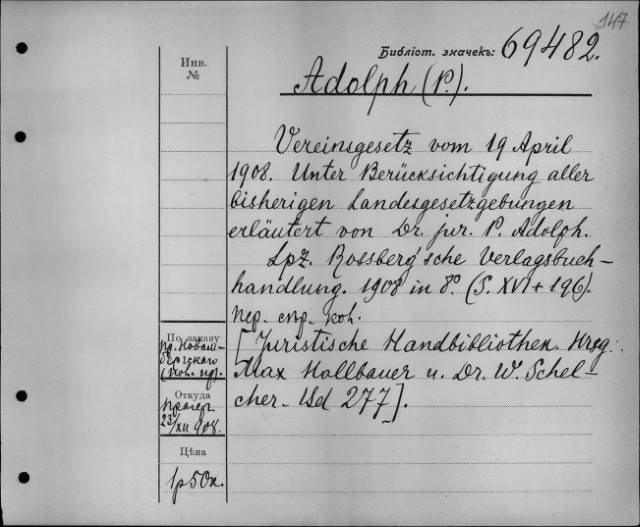 147
Библіот. значекъ: 69482.
Инв.
№
Adolph (P.).
Vereinsgesetz vom 19 April
1908. Unter Berücksichtigung aller
bisherigen Landesgesetzgebungen
erläutert von Dr. jur. P. Adolph.
Lpz. Rossberg'sche Verlagsbuch-
handlung. 1908 in 8º (S. XVI + 196).
пер. кол.
[Juristische Handbibliothek. Hrsg:
Max Hallbauer u. Dr. W. Schel-
cher. Bd 277].
По заказу
пр. Новом-
(гос. пр.)
Откуда
Прагер
23/XII 908.
Цѣна
1р 50к.